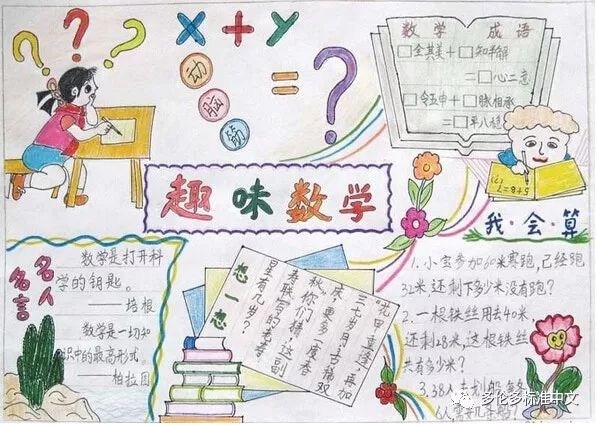 ? ? ?
X+Y
动
脑
筋
=?
数学 成语
□全其美+□知半解
=□心二意
□令五申+□脉相承
=□平八稳
趣味数学
我·会·算
1.小宝参加60米赛跑,已经跑
32米,还剩下多少米没有跑?
2.一根铁丝用去40米,
还剩28米,这根铁丝
共有多少米?
3.38人去划船,每
6人,需要几
名人
名言
数学是打开科
学的钥匙。
——培根
数学是一切知
识中的最高形式。
——柏拉图
想一想
重逢,再加
三七岁月;古稀双
庆,更多一度春
秋。你们猜,这副
寿联写的老寿
星有几岁?
多伦多标准中文